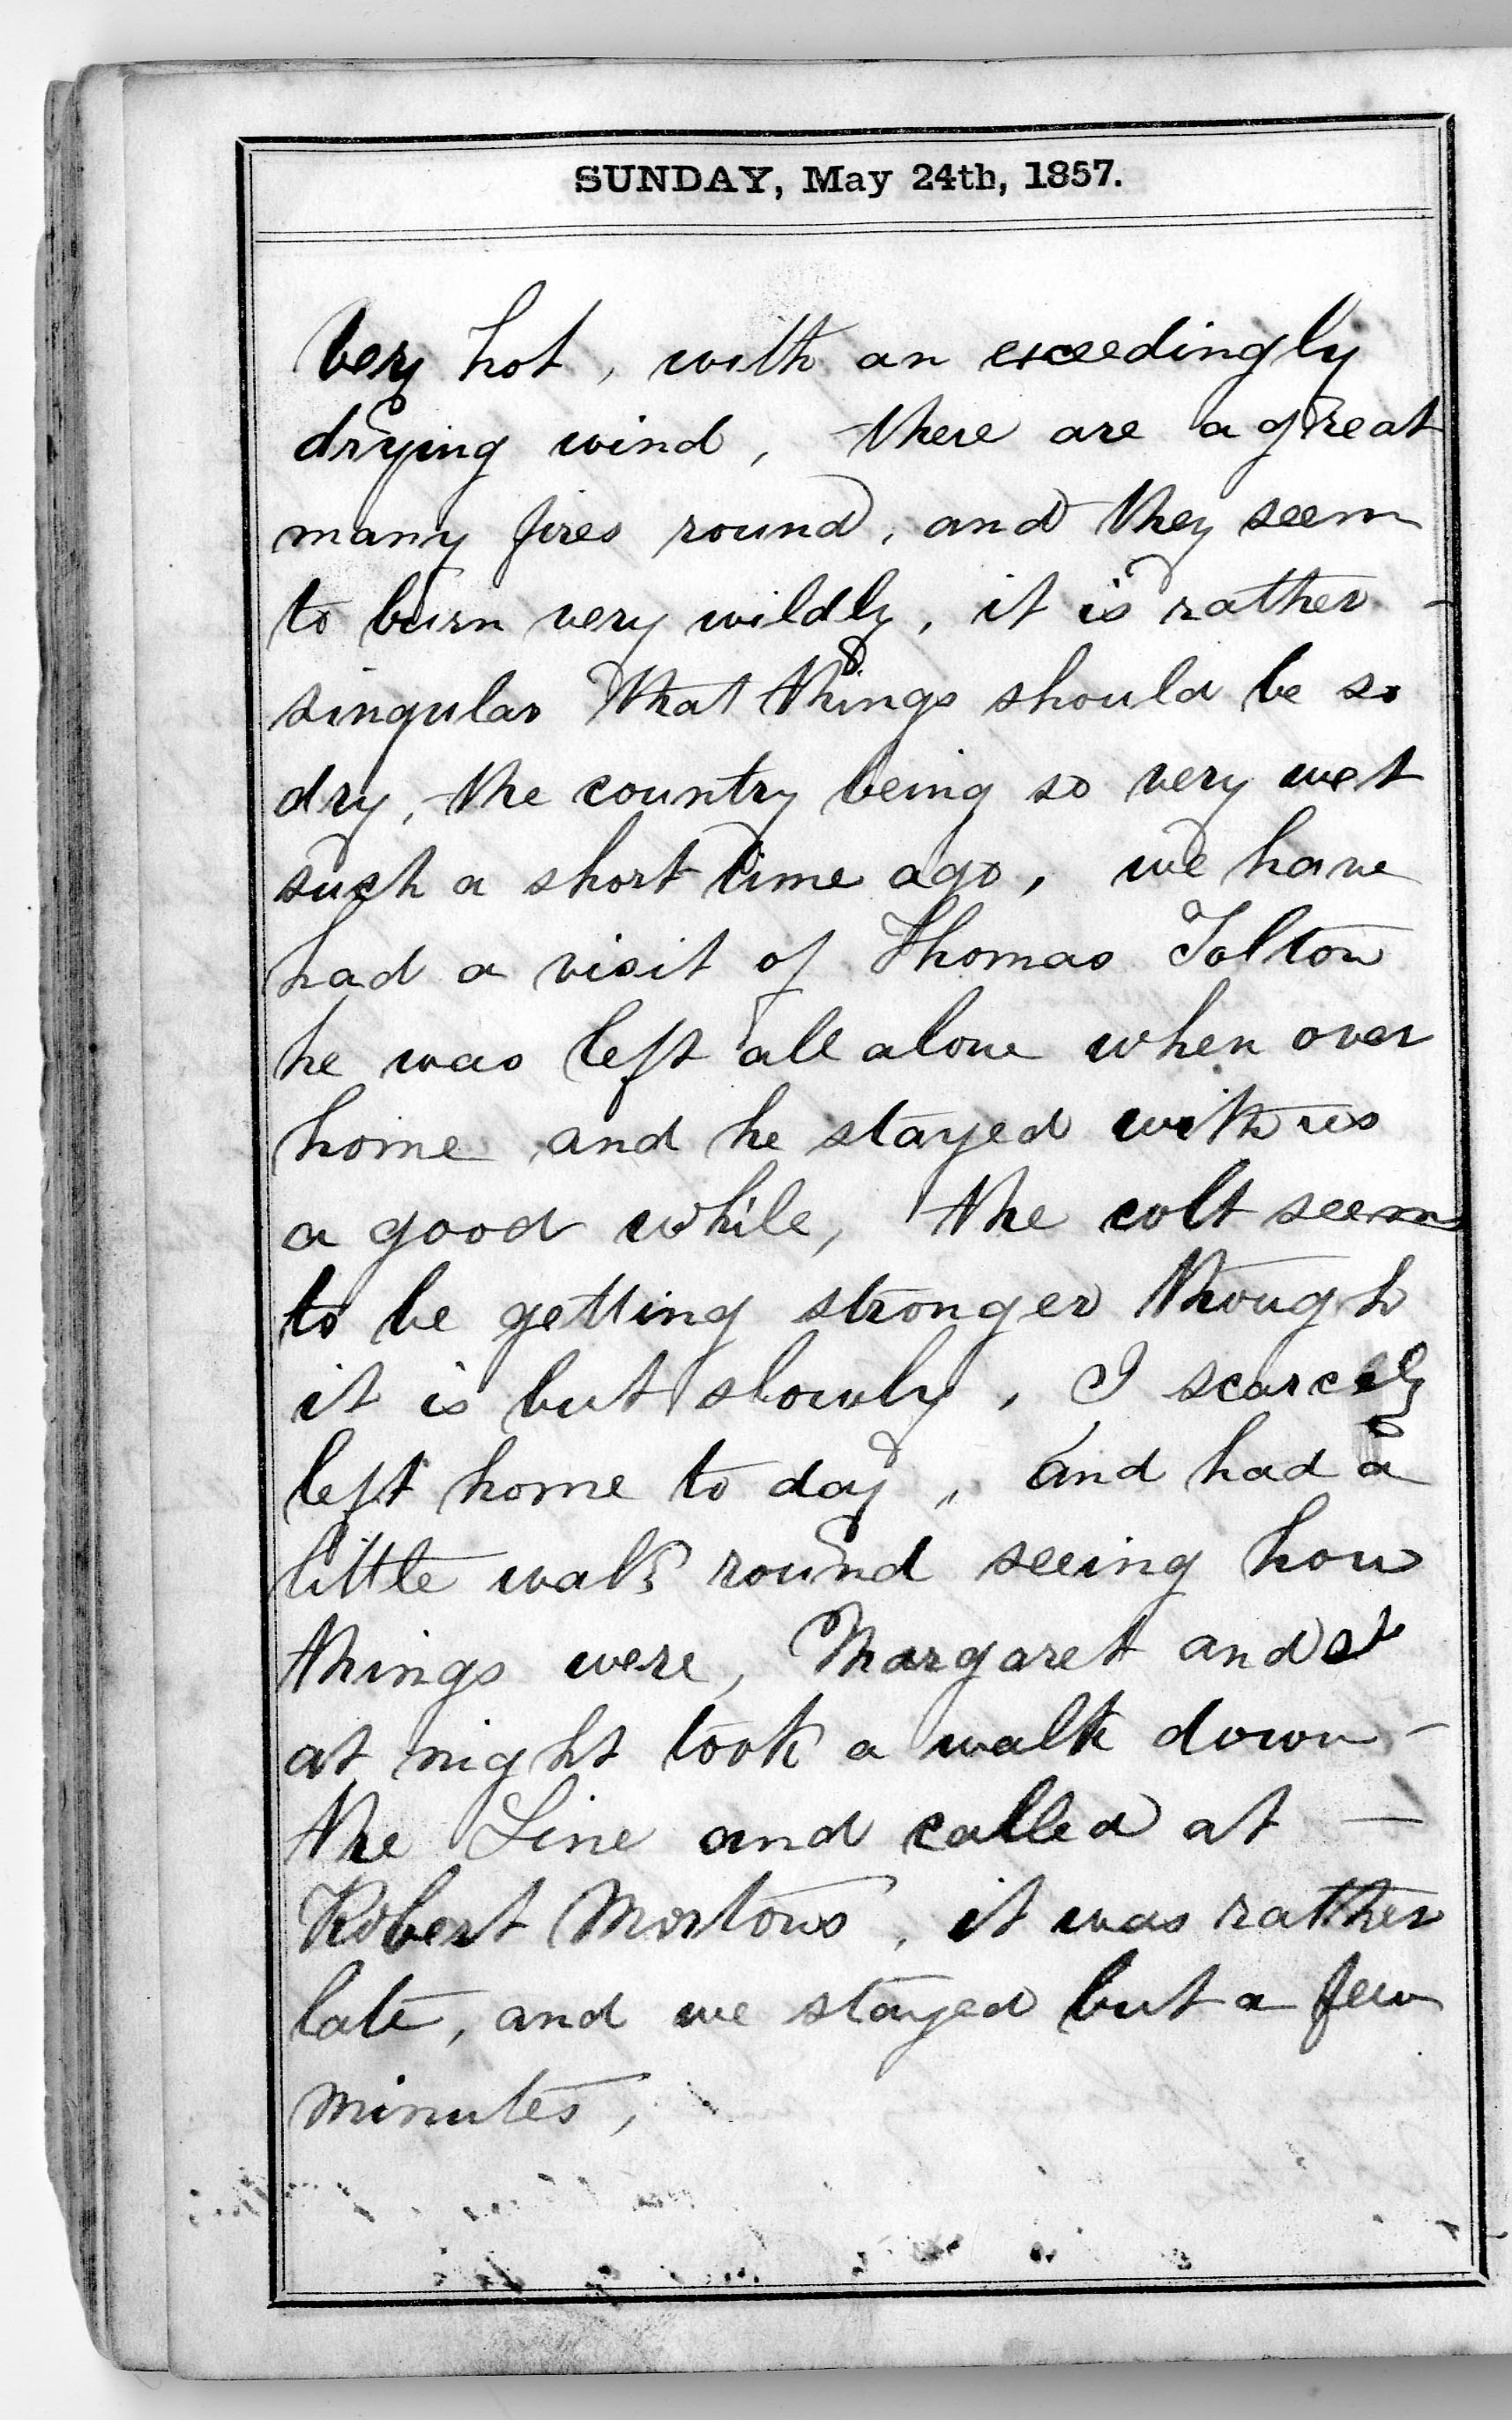 SUNDAY, May 24th, 1857.
Very hot, with an exceedingly
drying wind, there are a great
many fires round, and they seem
to burn very wildly, it is rather -
singular that things should be so
dry, the country being so very wet
such a short time ago, we have
had a visit of Thomas Tolton
he was left all alone when over
home and he stayed with us
a good while, the colt seems
to be getting stronger though
it is but slowly, I scarcely
left home to day, and had a
little walk round seeing how
things were, Margaret and I
at night took a walk down -
the Line and called at -
Robert Mortons, it was rather
late, and we stayed but a few
minutes,